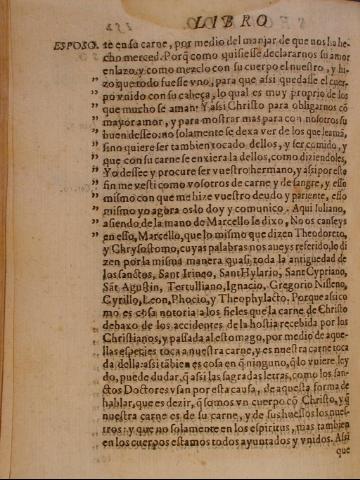 LIBRO
ESPOSO. te en su carne, por medio del manjar de que nos ha he-
cho merced. Porq̃ como quisiesse declararnos su amor
enlazo, y como mezclo con su cuerpo el nuestro, y hi-
zo que todo fuesse vno, para que assi quedasse el cuer-
po vnido con su cabeça, lo qual es muy proprio de los
que mucho se aman. Y assi Christo para obligarnos cõ
mayor amor, y para mostrar mas para con nosotros su
buen desseo: no solamente se dexa ver de los que le amã,
sino quiere ser tambien tocado dellos, y ser comido, y
que con su carne se enxiera la dellos, como diziendoles,
Yo dessee y procure ser vuestro hermano, y assi por este
fin me vesti como vosotros de carne y de sangre, y esso
mismo con que me hize vuestro deudo y pariente, esso
mismo yo agora os lo doy y comunico. Aqui Iuliano,
asiendo de la mano de Marcello le dixo, No os canseys
en esso, Marcello, que lo mismo que dizen Theodoreto,
y Chrysostomo, cuyas palabras nos aueys referido, lo di
zen por la misma manera quasi toda la antigüedad de
los sanctos, Sant Irineo, Sant Hylario, Sant Cypriano,
Sãt Agustin, Tertulliano, Ignacio, Gregorio Nisseno,
Cyrillo, Leon, Phocio, y Theophylacto. Porque asi co
mo es cosa notoria a los fieles que la carne de Christo
debaxo de los accidentes de la hostia recebida por los
Christianos, y passada al estomago, por medio de aque-
llas especies toca a nuestra carne, y es nuestra carne toca
da della: assi tãbien es cosa en q̃ ninguno, q̃ lo vuiere ley
do, puede dudar, q̃ assi las sagradas letras, como los san-
ctos Doctores vsan por esta causa, de aquesta forma de
hablar, que es dezir, q̃ somos vn cuerpo cõ Christo, y q̃
nuestra carne es de su carne, y de sus huessos los nues-
tros: y que no solamente en los espiritus, mas tambien
en los cuerpos estamos todos ayuntados y vnidos. Assi
que